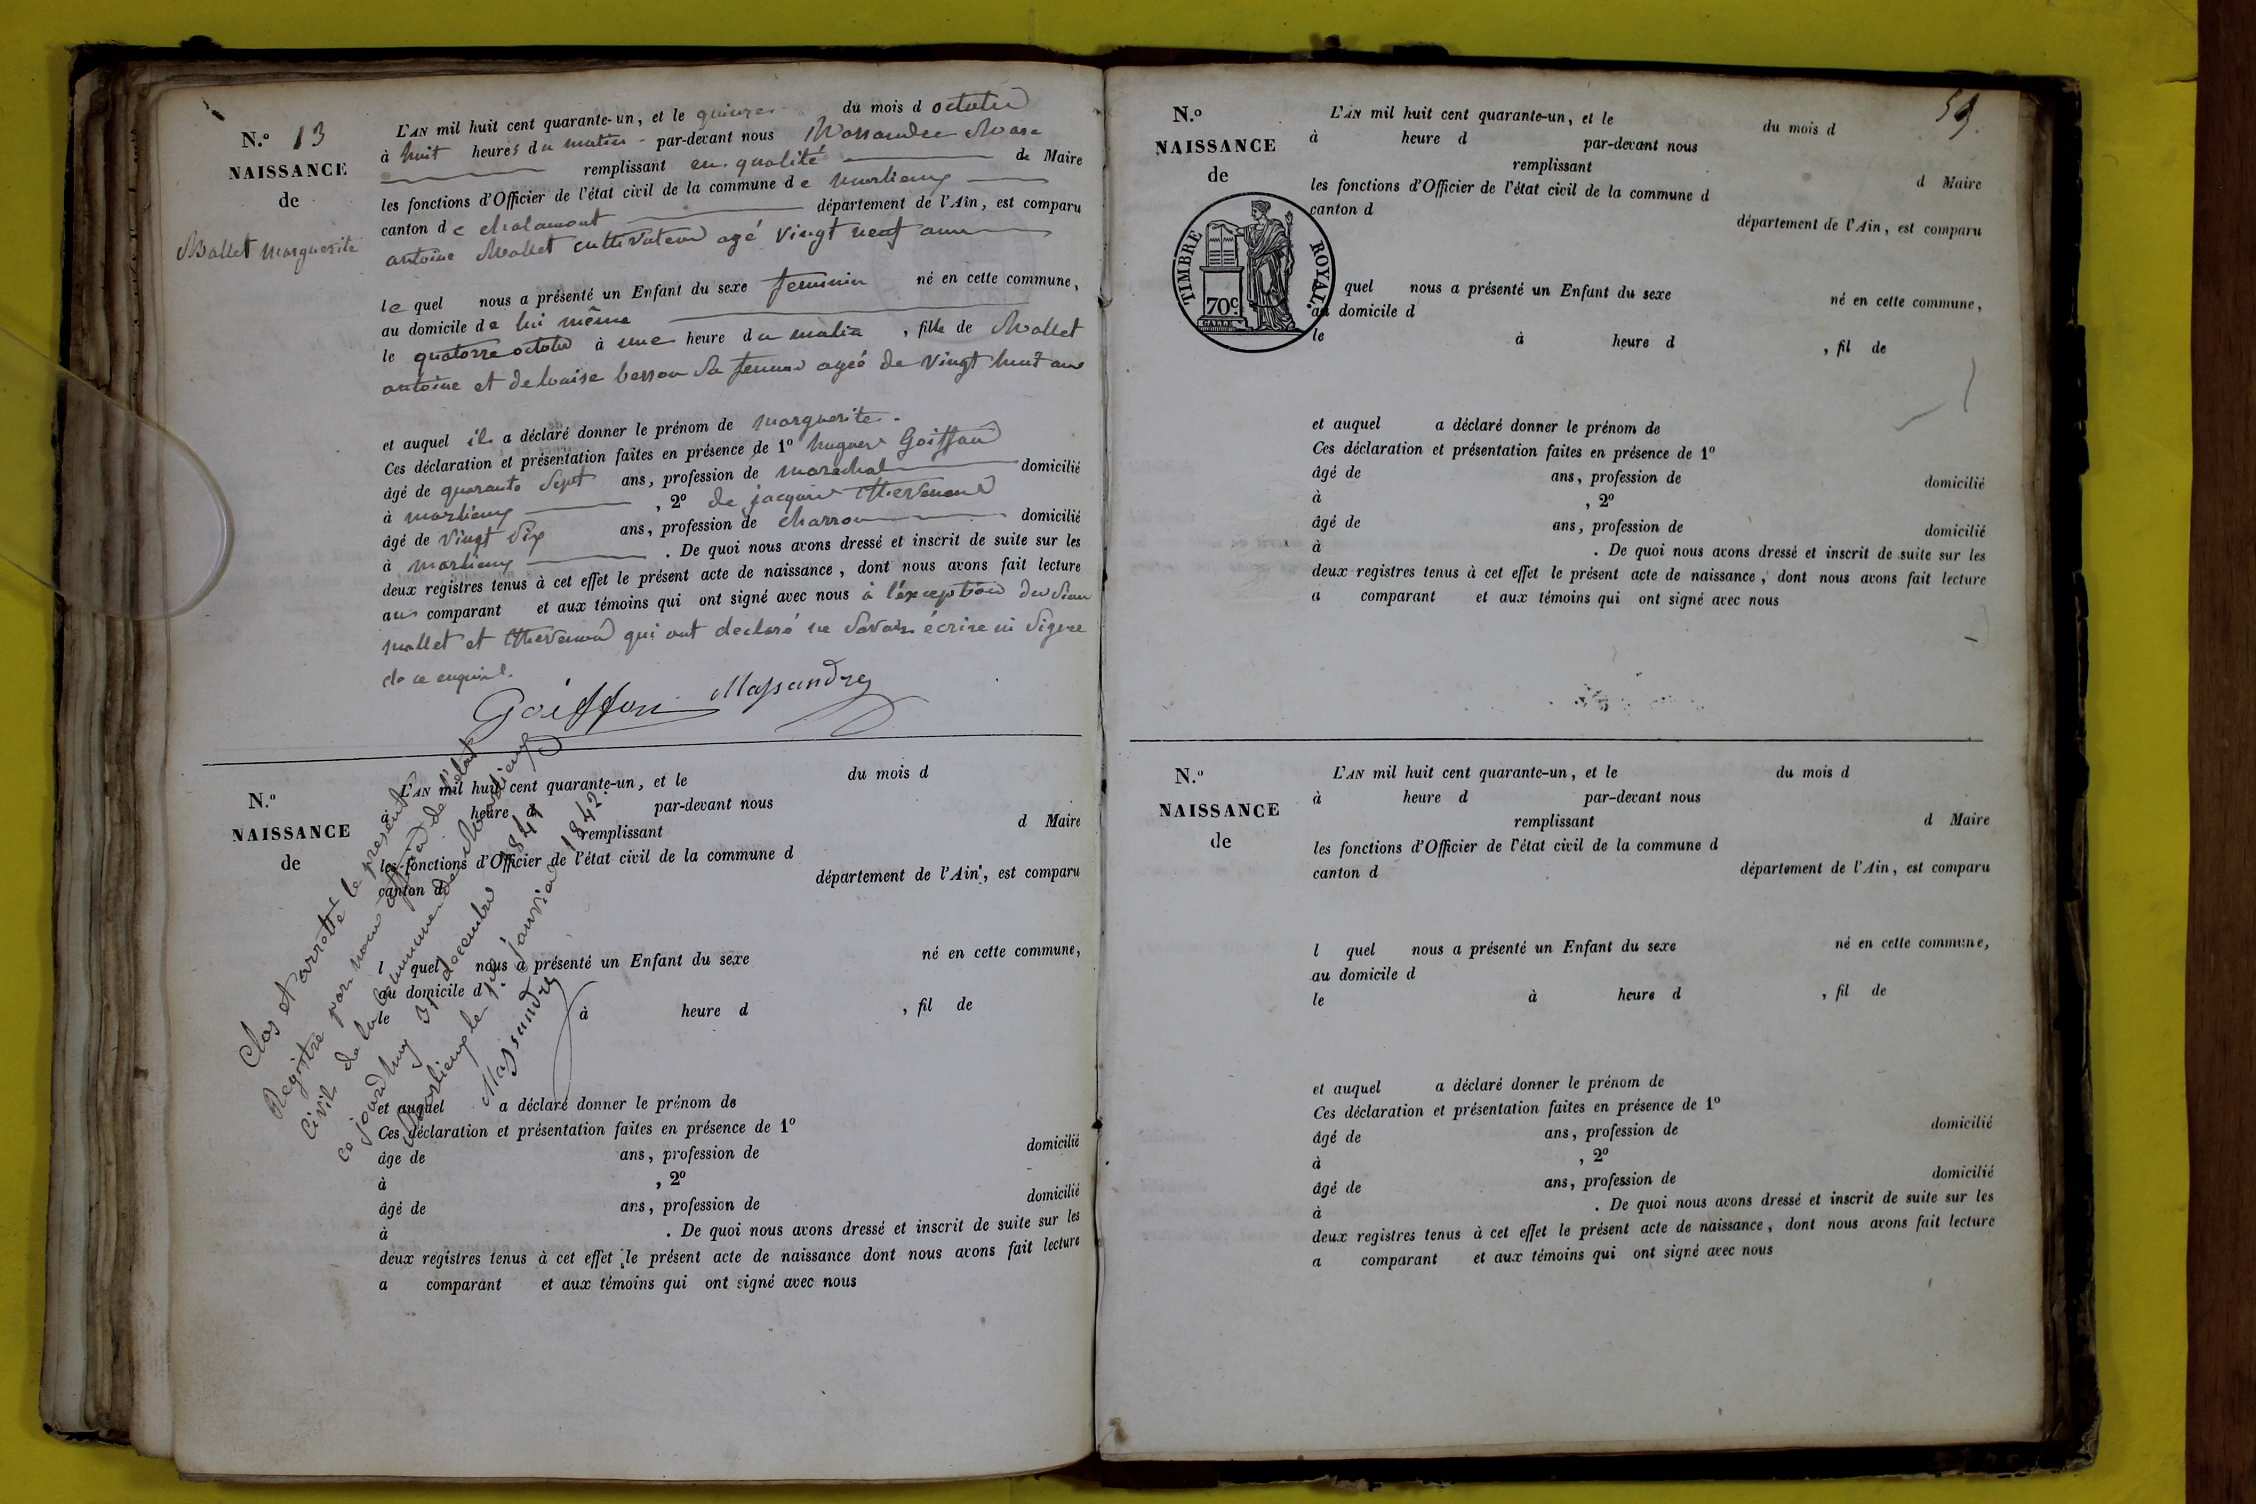 N.º 13
NAISSANCE
de
Mallet marguerite
L'AN mil huit cent quarante-un, et le quinze du mois d octobre
à huit heures du matin par-devant nous Massandre Marc
remplissant en qualité de Maire
les fonctions d'Officier de l'état civil de la commune de marlieux
canton de chalamont département de l'Ain, est comparu
antoine Mallet cultivateur agé vingt neuf ans
le quel nous a présenté un Enfant du sexe feminin né en cette commune,
au domicile de lui même
le quatorze octobre à une heure du matin, fille de Mallet
antoine et de louise besson sa femme agée de vingt huit ans
et auquel il a déclaré donner le prénom de marguerite.
Ces déclaration et présentation faites en présence de 1º hugues Goiffon
âgé de quarante sept ans, profession de marechal domicilié
à marlieux, 2º de jacques thevenond
âgé de vingt six ans, profession de charron domicilié
à marlieux. De quoi nous avons dressé et inscrit de suite sur les
deux registres tenus à cet effet le présent acte de naissance, dont nous avons fait lecture
aux comparant et aux témoins qui ont signé avec nous à l'exception des
mallet et thevenond qui ont declaré ne savoir écrire ni signer
de ce enquis.
Goiffon Massandre
N.º
NAISSANCE
de
L'AN mil huit cent quarante-un, et le du mois d
à heure d par-devant nous
remplissant d Maire
les fonctions d'Officier de l'état civil de la commune d
canton d département de l'Ain, est comparu
l quel nous a présenté un Enfant du sexe né en cette commune,
au domicile d
le à heure d, fil de
et auquel a déclaré donner le prénom de
Ces déclaration et présentation faites en présence de 1º
âge de ans, profession de domicilié
à, 2º
âgé de ans, profession de domicilié
à. De quoi nous avons dressé et inscrit de suite sur les
deux registres tenus à cet effet le présent acte de naissance dont nous avons fait lecture
a comparant et aux témoins qui ont signé avec nous
Clos et arretté le present
Registre par nous officier de l'état
Civil de la Commune de Marlieux
ce jourd'huy 31 decembre 1841
Marlieux le 1er janvier 1842.
Massandre
59.
N.º
NAISSANCE
de
TIMBRE ROYAL.
70c.
L'AN mil huit cent quarante-un, et le du mois d
à heure d par-devant nous
remplissant d Maire
les fonctions d'Officier de l'état civil de la commune d
canton d département de l'Ain, est comparu
quel nous a présenté un Enfant du sexe né en cette commune,
au domicile d
le à heure d, fil de
et auquel a déclaré donner le prénom de
Ces déclaration et présentation faites en présence de 1º
âgé de ans, profession de domicilié
à, 2º
âgé de ans, profession de domicilié
à. De quoi nous avons dressé et inscrit de suite sur les
deux registres tenus à cet effet le présent acte de naissance, dont nous avons fait lecture
a comparant et aux témoins qui ont signé avec nous
N.º
NAISSANCE
de
L'AN mil huit cent quarante-un, et le du mois d
à heure d par-devant nous
remplissant d Maire
les fonctions d'Officier de l'état civil de la commune d
canton d département de l'Ain, est comparu
l quel nous a présenté un Enfant du sexe né en cette commune,
au domicile d
le à heure d, fil de
et auquel a déclaré donner le prénom de
Ces déclaration et présentation faites en présence de 1º
âgé de ans, profession de domicilié
à, 2º
âgé de ans, profession de domicilié
à. De quoi nous avons dressé et inscrit de suite sur les
deux registres tenus à cet effet le présent acte de naissance, dont nous avons fait lecture
a comparant et aux témoins qui ont signé avec nous